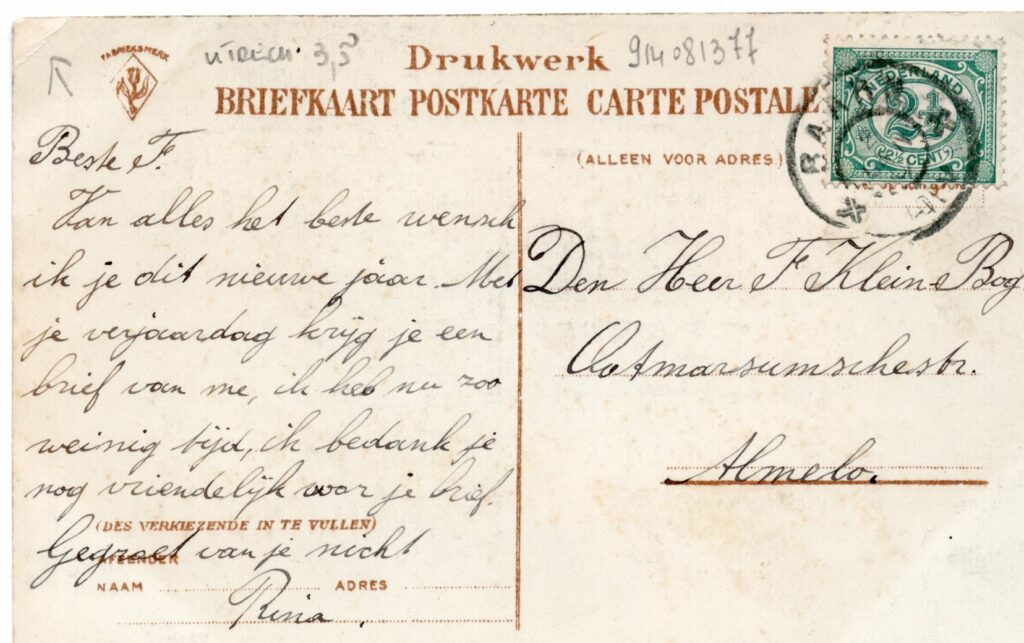 FABRIEKSMERK
UTRECH 3,5
Drukwerk
914081377
BRIEFKAART POSTKARTE CARTE POSTALE
(ALLEEN VOOR ADRES)
NEDERLAND
2½
(2½ CENT)
BAA
Beste F.
Van alles het beste wensch
ik je dit nieuwe jaar. Met
je verjaardag krijg je een
brief van me, ik heb nu zoo
weinig tijd, ik bedank je
nog vriendelijk voor je brief.
(DES VERKIEZENDE IN TE VULLEN)
Gegroet van je nicht
AFZENDER
NAAM ADRES
Rina.
Den Heer F Klein Bog
Ootmarsumschestr.
Almelo.